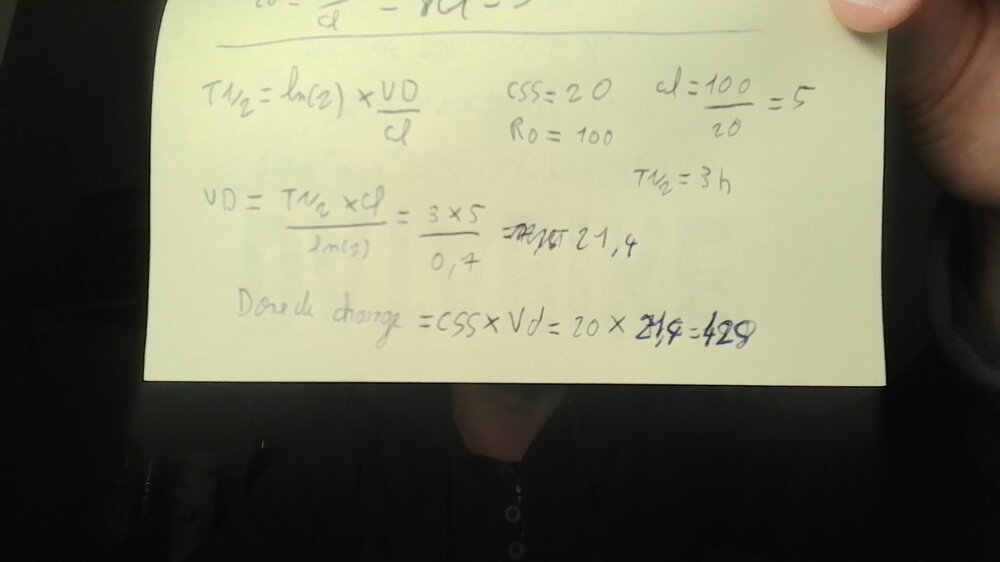 T1/2 = ln(2) × VD/Cl
CSS = 20
R0 = 100
Cl = 100/20 = 5
T1/2 = 3h
VD = T1/2 × Cl/ln(2) = 3 × 5/0,7 = 21,4
Dose de charge = CSS × Vd = 20 × 21,4 = 428